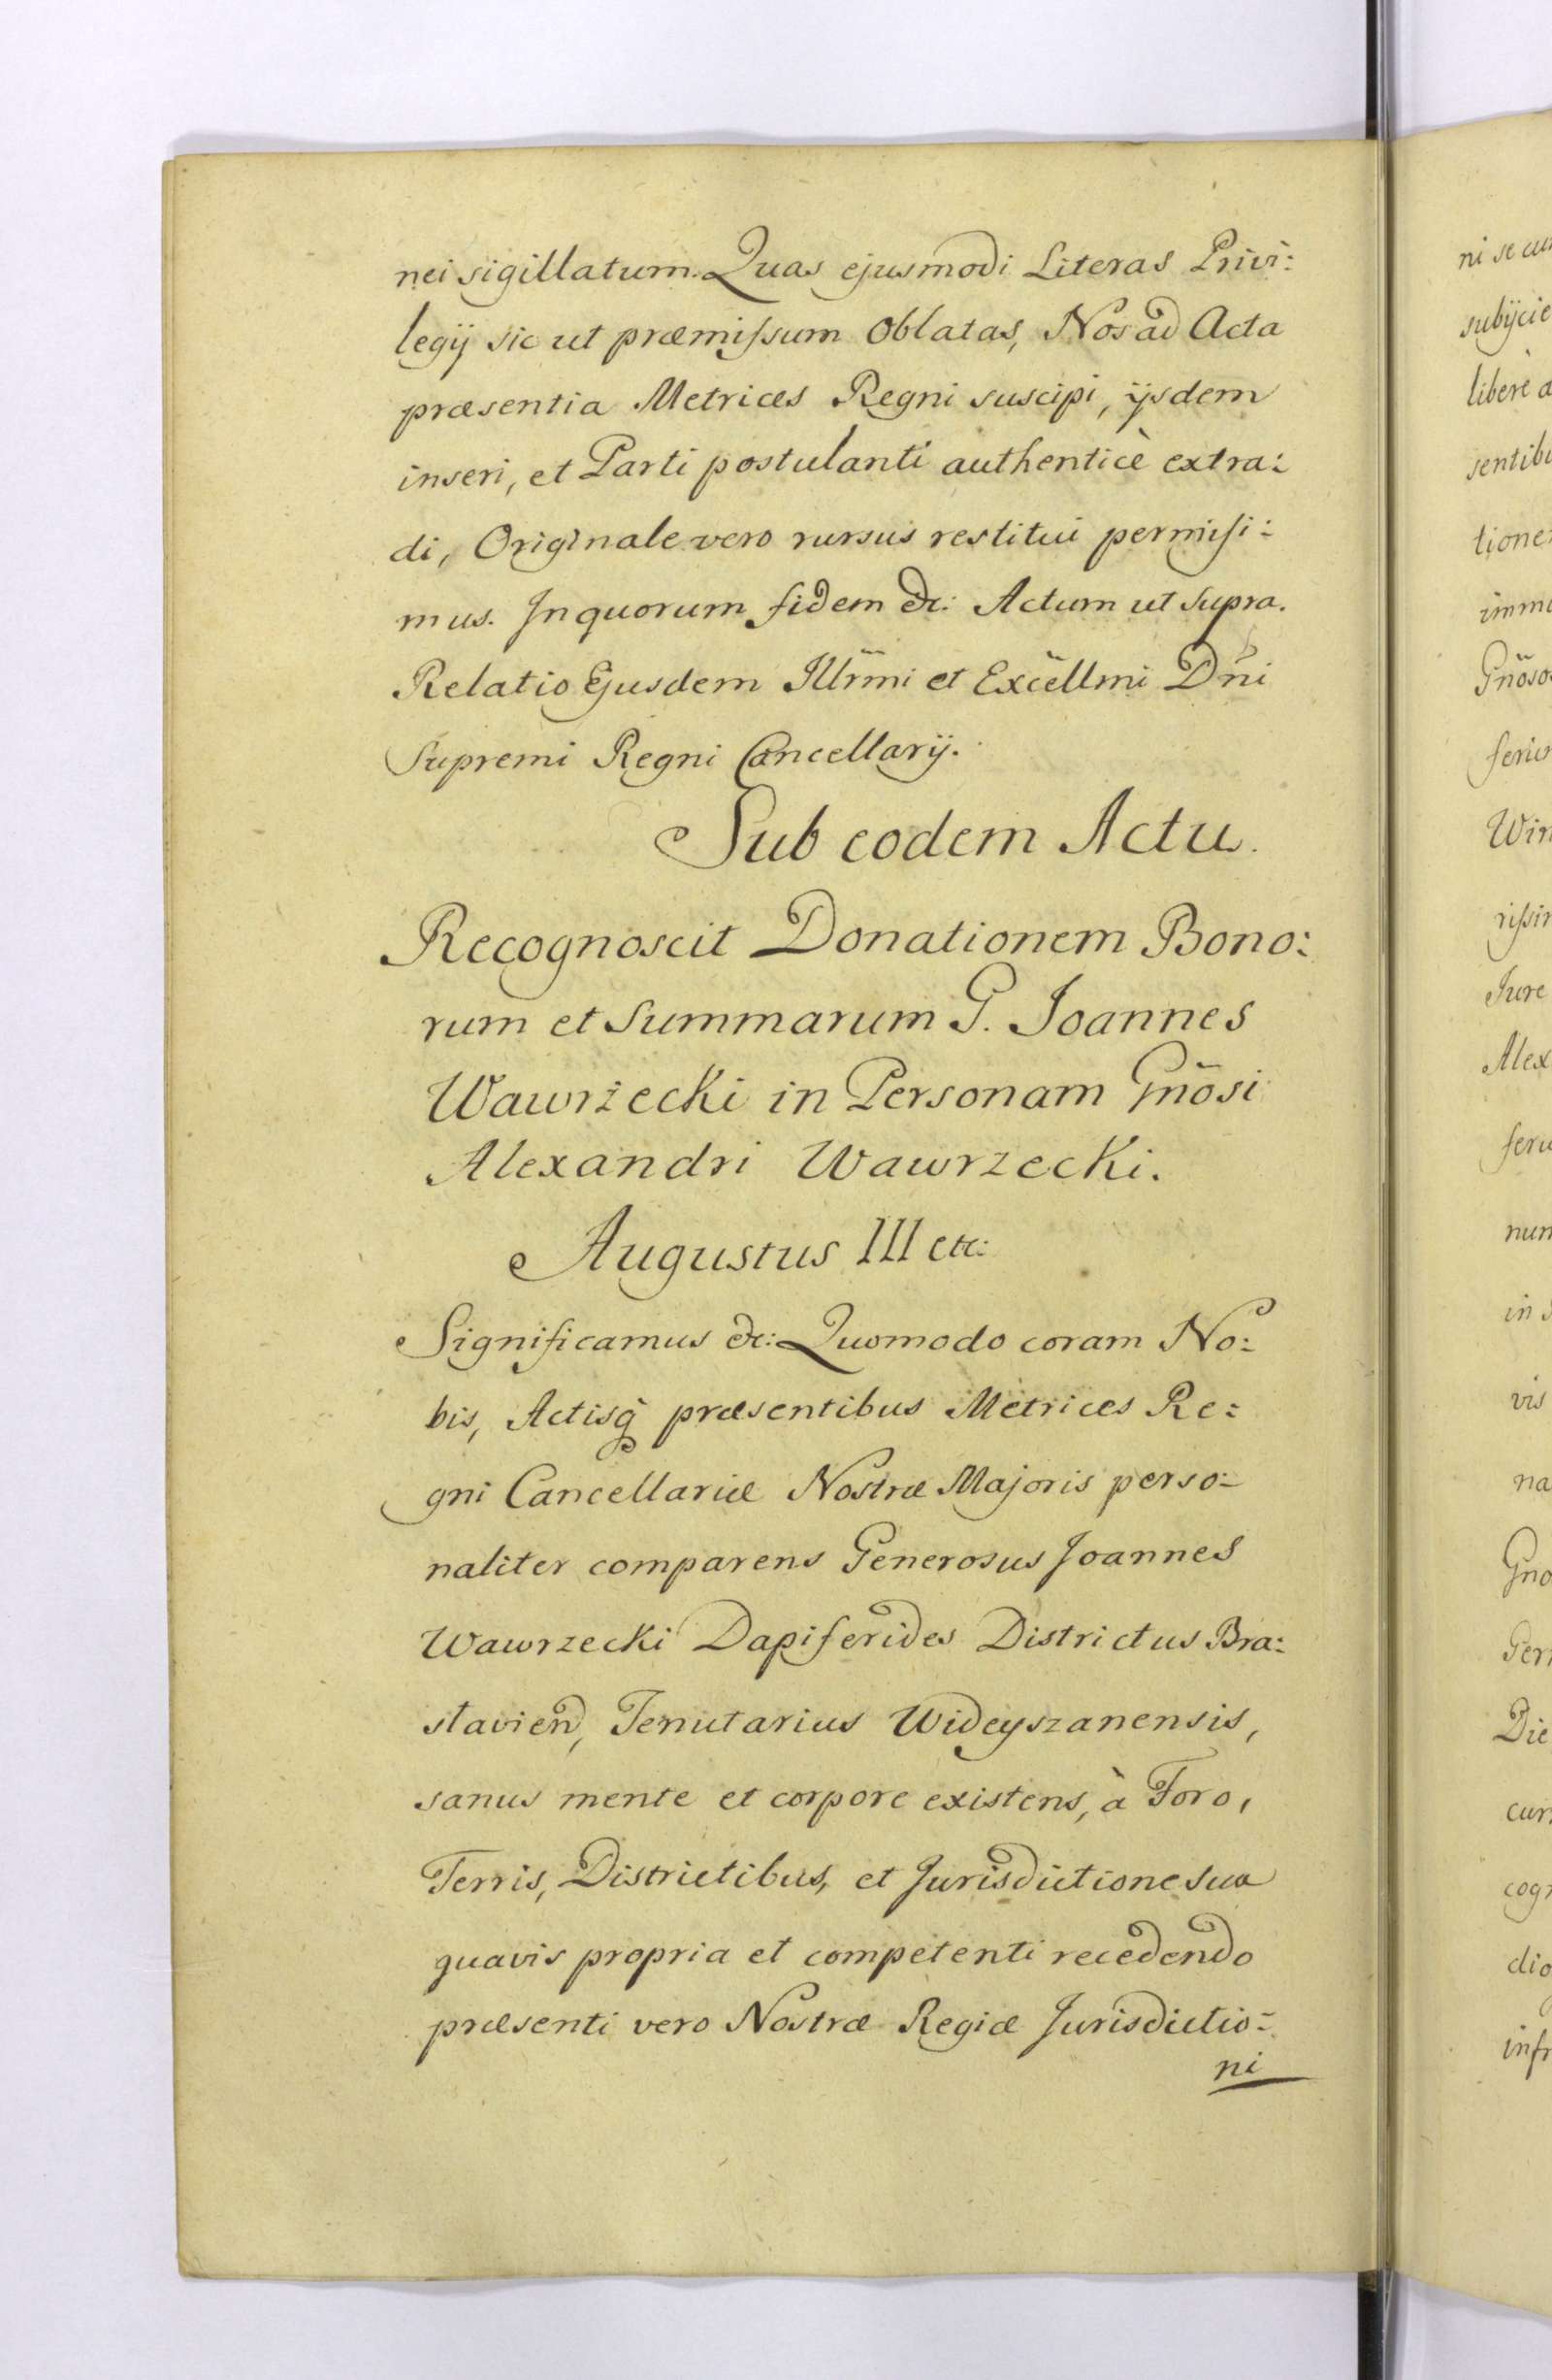 nei sigillatum. Quas ejusmodi Literas Privi:
legÿ sic ut præmiſsum Oblatas, Nos ad Acta
præsentia Metrices Regni suscipi, ÿsdem
inseri, et Parti postulanti authenticè extra:
di, Originale vero rursus restitui permiſi:
mus. In quorum fidem &c: Actum ut supra.
Relatio Ejusdem Illr̃mi et Excẽllmi Dñi
Supremi Regni Cancellarÿ.
Sub eodem Actu.
Recognoscit Donationem Bono:
rum et Summarum G. Joannes
Wawrzecki in Personam Gnõsi
Alexandri Wawrzecki.
Augustus III etc:
Significamus &c: Quomodo coram No:
bis, Actisq̃ præsentibus Metrices Re:
gni Cancellariæ Nostræ Majoris perso:
naliter comparens Generosus Joannes
Wawrzecki Dapiferides Districtus Bra:
slavien̄, Tenutarius Wideyszanensis,
sanus mente et corpore existens, à Foro,
Terris, Districtibus, et Jurisdictione sua
quavis propria et competenti recedendo
præsenti vero Nostræ Regiæ Jurisdictio:
ni
ni se cu
subÿcie
liberè a
sentibu
tione
imm
Gnõso
feri
Win
riſsi
Jure
Alex
feri
num
in
vis
na
Gno
Ger
Die
cur
cog
dio
infr